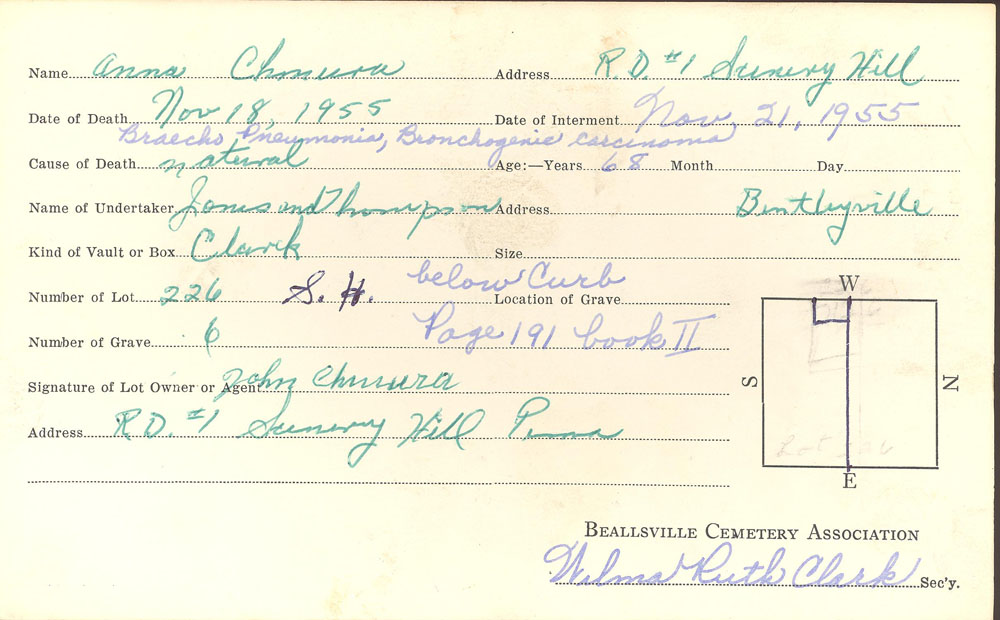 Name Anna Chmura Address R.D. #1 Scenery Hill
Date of Death Nov 18, 1955 Date of Interment Nov. 21, 1955
Braecho Pneumonia, Bronchogenic Carcinoma
Cause of Death natural Age:—Years 68 Month Day
Name of Undertaker Jones and Thompson Address Bentleyville
Kind of Vault or Box Clark Size
below Curb
Number of Lot 226 S. H. Location of Grave
Page 191 book II
Number of Grave 6
Signature of Lot Owner or Agent John Chmura
Address R.D. #1 Scenery Hill Penna
W
S N
Lot
E
BEALLSVILLE CEMETERY ASSOCIATION
Wilma Ruth Clark Sec'y.